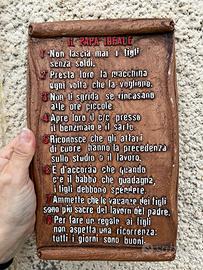 IL PAPÀ IDEALE
1 Non lascia mai i figli
senza soldi.
2 Presta loro la macchina
ogni volta che la vogliono.
3 Non li sgrida se rincasano
alle ore piccole.
4 Apre loro il c/c presso
il benzinaio e il sarto.
5 Riconosce che gli affari
di cuore hanno la precedenza
sullo studio o il lavoro.
6 E d'accordo che quando
c'è il babbo che guadagna
i figli debbono spendere.
7 Ammette che le vacanze dei figli
sono più sacre del lavoro del padre.
Per fare un regalo ai figli
non aspetta una ricorrenza:
tutti i giorni sono buoni.